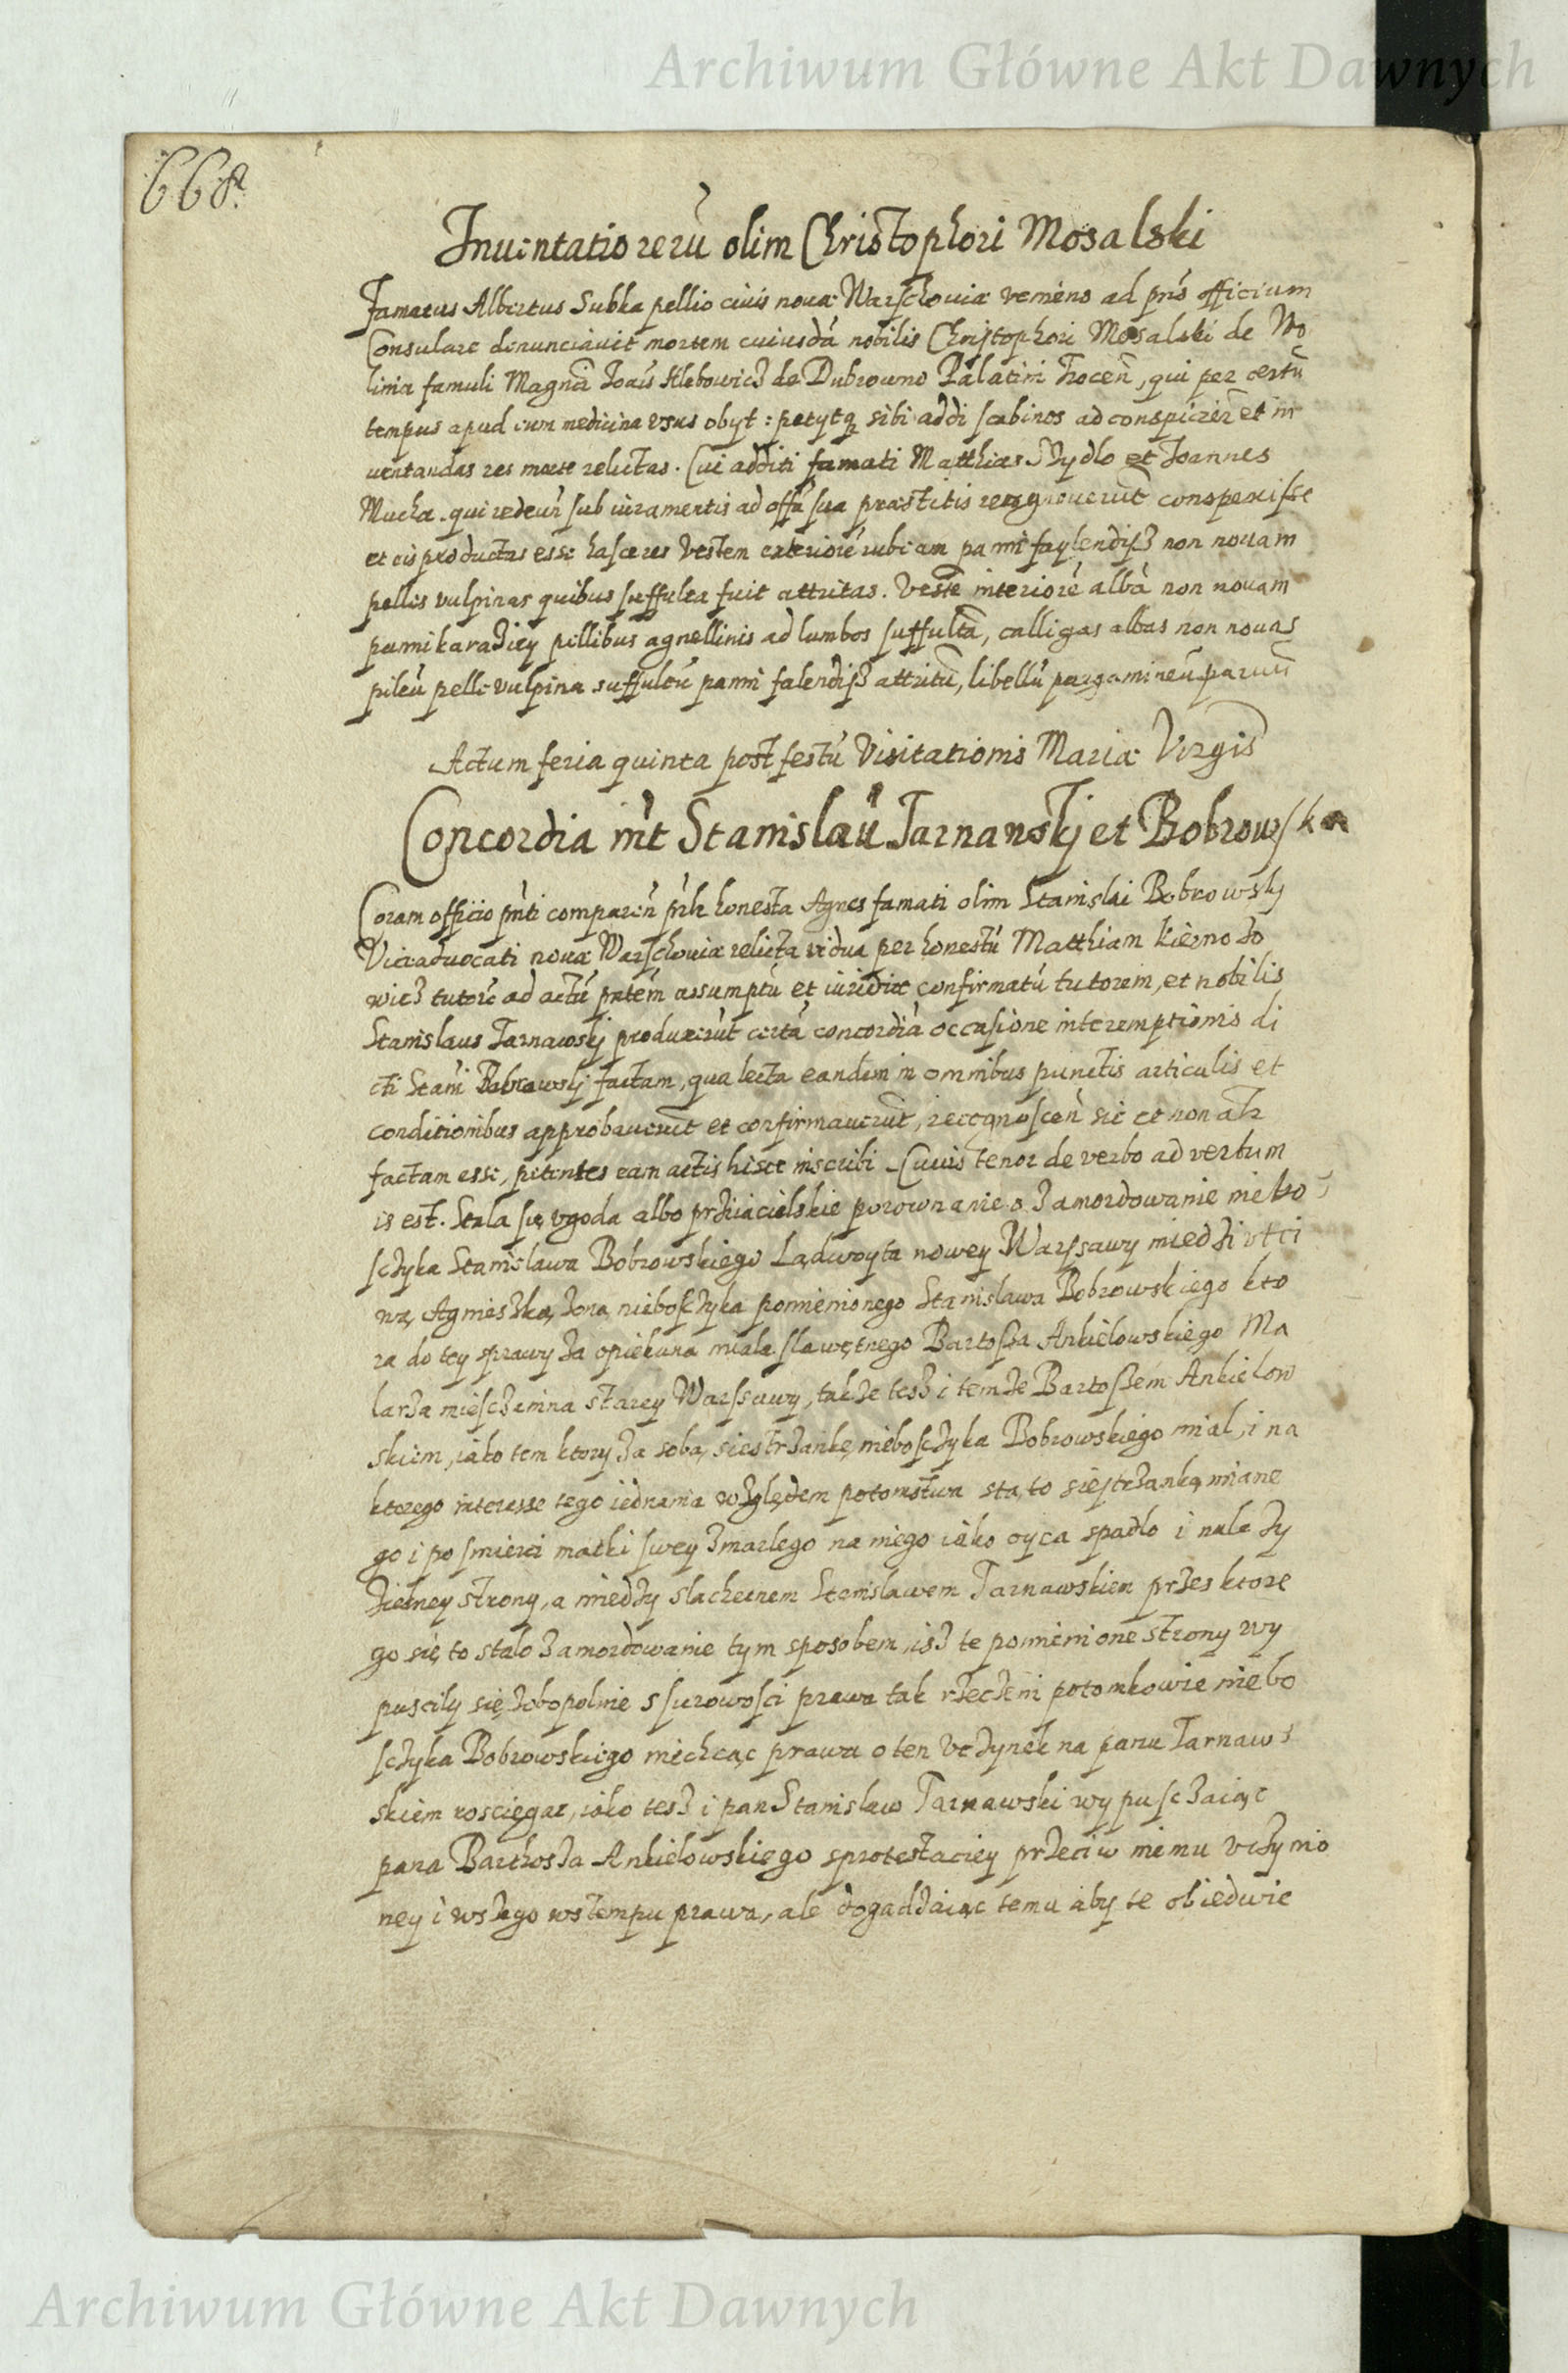 Archiwum Główne Akt Dawnych
668.
Inuentatio rerū olim Christophori Mosalski
Famatus Albertus Subka pellio ciuis nouæ Warschouiæ veniens ad pn̄s officium
Consulare denunciauit mortem cuiusdā nobilis Christophori Mosalski de Wo
linia famuli Magnci Joan̄s Hlebowicz de Dubrowno Palatini Trocen̄, qui per certū
tempus apud eum medicina usus obyt: petytq sibi addi scabinos ad conspicien et in
uentandas res morte relictas. Cui additi famati Matthias Mydlo et Joannes
Mucha. qui redeun̄ sub iuramentis ad offa sua præstitis recognouerūt conspexisse
et eis productas esse hasce res Vestem exteriorē rubeam panni faylendisz non nouam
pelles vulpinas quibus suffulta fuit attritas. Vestē interiorē albā non nouam
panni karaziey pellibus agnellinis ad lumbos suffultā, calligas albas non nouas
pileū pelle vulpina suffultū panni falendisz attritū, libellū pargamineū paruū
Actum feria quinta post festū Visitationis Mariæ Virgis
Concordia int Stanislaū Tarnawskj et Bobrowska
Coram officio pn̄ti comparen̄ pn̄lr honesta Agnes famati olim Stanislai Bobrowskj
Viceaduocati nouæ Warschouiæ relicta vidua per honestū Matthiam Kierno zo
wicz tutorē ad actū pn̄tem assumptū et iuridice confirmatū tutorem, et nobilis
Stanislaus Tarnawskj produxerūt certā concordiā occasione interemptionis di
cti Stani Bobrawskj factam, qua lecta eandem in omnibus punctis articulis et
conditionibus approbauerūt et confirmauerūt, recognoscen̄ sic et non alr
factam esse, petentes eam actis hisce inscribi. Cuius tenor de verbo ad verbum
is est. Stala się vgoda albo prziiacielskie porownanie o zamordowanie niebo
sczyka Stanislawa Bobrowskiego Lądwoyta nowey Warssawy miedzi vtci
wą Agnieszką, żoną nieboſczyka pomienionego Stanislawa Bobrowskiego kto
ra do tey sprawy za opiekuna miala slawętnego Bartosza Ankielowskiego Ma
larza miesczanina starey Warssawy, także tesz i temże Bartoszem Ankielow
skiem, iako tem ktory za sobą siestrzankę nieboſczyka Bobrowskiego mial, i na
ktorego interesse tego iednania względem potomstwa stą to siestrzanką miane
go i po smierci matki swey zmarlego na niego iako oyca spadlo i nale zy
ziedney strony, a miedzy slachetnem Stanislawem Tarnawskiem przes ktore
go się to stalo zamordowanie tym sposobem, isz te pomienione strony wy
puscily się zobopolnie s surowosci prawa tak rzeczeni potomkowie niebo
sczyka Bobrowskiego niechcąc prawa o ten vczynek na panu Tarnaws
skiem rosciegac, iako tesz i pan Stanislaw Tarnawski wypusczaiąc
pana Barthosza Ankielowskiego sprotestaciey przeciw niemu vczynio
ney i wszego wstempu prawa, ale dogadzaiąc temu aby te obiedwie
Archiwum Główne Akt Dawnych